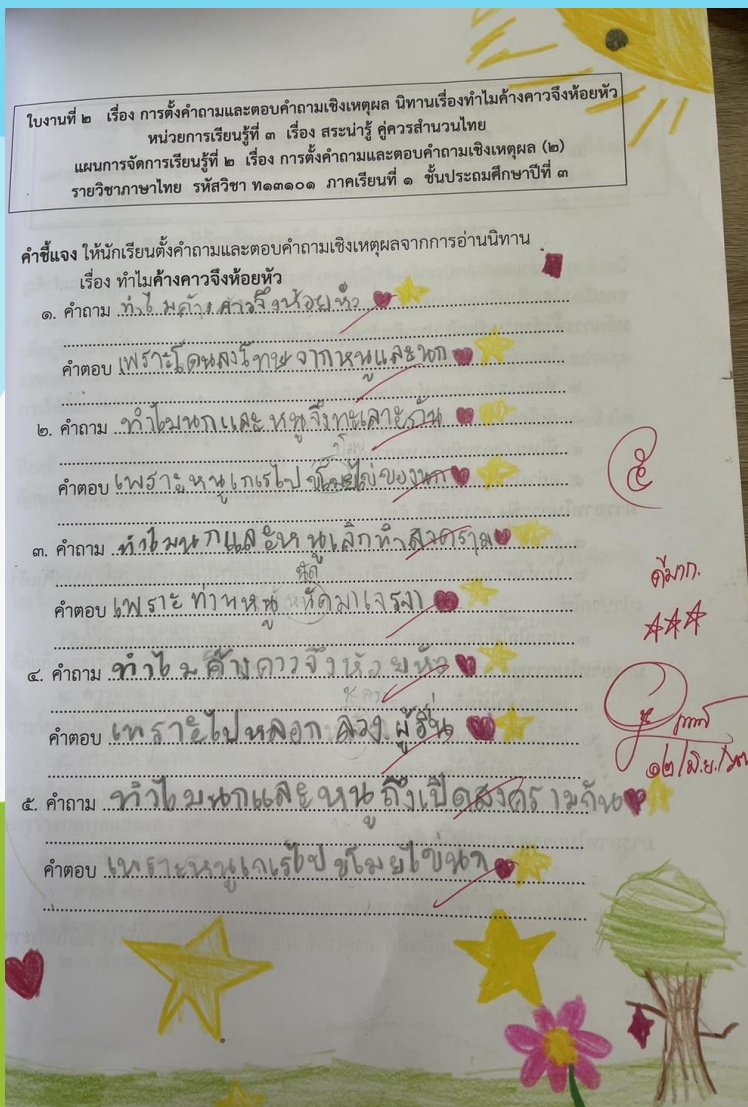 ใบงานที่ ๒ เรื่อง การตั้งคำถามและตอบคำถามเชิงเหตุผล นิทานเรื่องทำไมค้างคาวจึงห้อยหัว
หน่วยการเรียนรู้ที่ ๓ เรื่อง สระน่ารู้ คู่ควรสำนวนไทย
แผนการจัดการเรียนรู้ที่ ๒ เรื่อง การตั้งคำถามและตอบคำถามเชิงเหตุผล (๒)
รายวิชาภาษาไทย รหัสวิชา ท๑๓๑๐๑ ภาคเรียนที่ ๑ ชั้นประถมศึกษาปีที่ ๓
คำชี้แจง ให้นักเรียนตั้งคำถามและตอบคำถามเชิงเหตุผลจากการอ่านนิทาน
เรื่อง ทำไมค้างคาวจึงห้อยหัว
๑. คำถาม ทำไมค้างคาวจึงห้อยหัว
คำตอบ เพราะโดนลงโทษจากหนูและนก
๒. คำถาม ทำไมนกและหนูจึงทะเลาะกัน
ขโมย
คำตอบ เพราะหนูเกเรไปขโมยไข่ของนก
๕
๓. คำถาม ทำไมนกและหนูเลิกทำสงคราม
นัด
คำตอบ เพราะท่านหนู นัดมาเจรจา
ดีมาก
๔. คำถาม ทำไมค้างคาวจึงห้อยหัว
คำตอบ เพราะไปหลอกลวงผู้อื่น
๑๒/มิ.ย./
๕. คำถาม ทำไมนกและหนูถึงเปิดสงครามกัน
คำตอบ เพราะหนูเกเรไปขโมยไข่นก